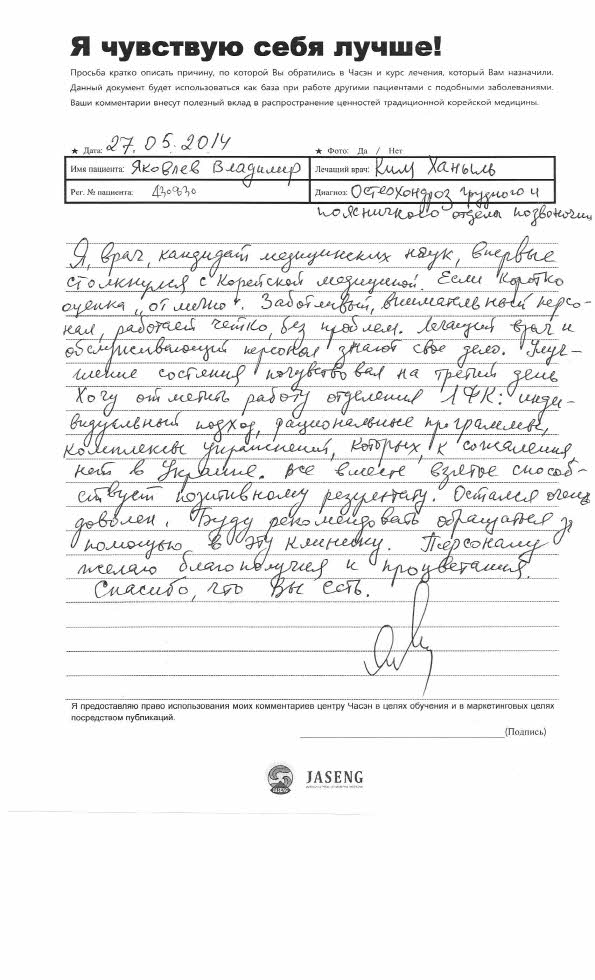 Я чувствую себя лучше!
Просьба кратко описать причину, по которой Вы обратились в Часэн и курс лечения, который Вам назначили.
Данный документ будет использоваться как база при работе другими пациентами с подобными заболеваниями.
Ваши комментарии внесут полезный вклад в распространение ценностей традиционной корейской медицины.
★ Дата: 27.05.2014 ★ Фото: Да / Нет
Имя пациента: Яковлев Владимир Лечащий врач: Ким Ханыль
Рег. № пациента: 430830 Диагноз: Остеохондроз грудного и
поясничного отдела позвоночн
Я, врач, кандидат медицинских наук, впервые
столкнулся с Корейской медициной. Если коротко
оценка "отлично". Заботливый, внимательный персо-
нал, работает четко, без проблем. Лечащий врач и
обслуживающий персонал знают свое дело. Улуч-
шение состяния почувствовал на третий день
Хочу отметить работу отделения ЛФК: инди-
видуальный подход, рациональные программы,
комплексы упражнений, которых, к сожалению,
нет в Украине. Все вместе взятое способ-
ствует позитивному результату. Остался очень
доволен. Буду рекомендовать обращаться за
помощью в эту клинику. Персоналу
желаю благополучия и процветания.
Спасибо, что Вы есть.
Я предоставляю право использования моих комментариев центру Часэн в целях обучения и в маркетинговых целях
посредством публикаций.
(Подпись)
JASENG